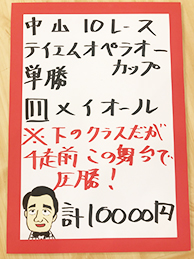 中山10レース
テイエムオペラオー
カップ
単勝
11 メイオール
※下のクラスだが
1走前この舞台で
圧勝!
計10000円